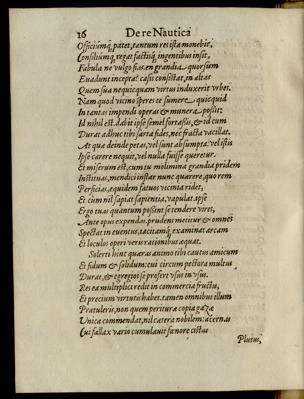 16 De re Nautica
Officiumq́; patet, tantum res ista monebit,
Consiliumq́; regat factisq́; ingentibus insit,
Fabula ne vulgo fias. en grandia quorsum
Euadunt incepta? casu consistat, in altas
Quem sua nequicquam virtus induxerit vrbes.
Nam quod vicino speres te sumere, quicquid
In tantas impendi operas & munera possit:
Id nihil est. dabit ipse semel fortassis, & id cum
Durat adhuc tibi sarta fides, nec fracta vacillat.
At qua deinde petas, vel sunt absumpta: vel istis
Ipse carere nequit, vel nulla fuisse queretur.
Et miserum est, cum tu molimina grandia pridem
Instituas, mendici instar nunc quarere, quo rem
Perficias, equidem fatuos vicinia ridet,
Et cum nil sapiat sapientia, vapulat ipse
Ergo tuas quantum possint se tendere vires,
Ante opus expendas. prudens metitur & omnes
Spectat in euentus, tacitamq́; examinat arcam
Et loculos operi veris rationibus æquat.
Solerti hinc quæras animo tibi cautus amicum
Et fidum & solidum: cui circum pectora multus
Durat, & egregios se profert vsus in vsus.
Res ea multiplici redit in commercia fructu,
Et precium virtutis habet. tamen omnibus illum
Prætuleris, non quem peritura copia gazæ
Unica commendat, nil cætera nobilem: aceruas
Cui fallax vario cumulauit fœnore cistas
Plutus,